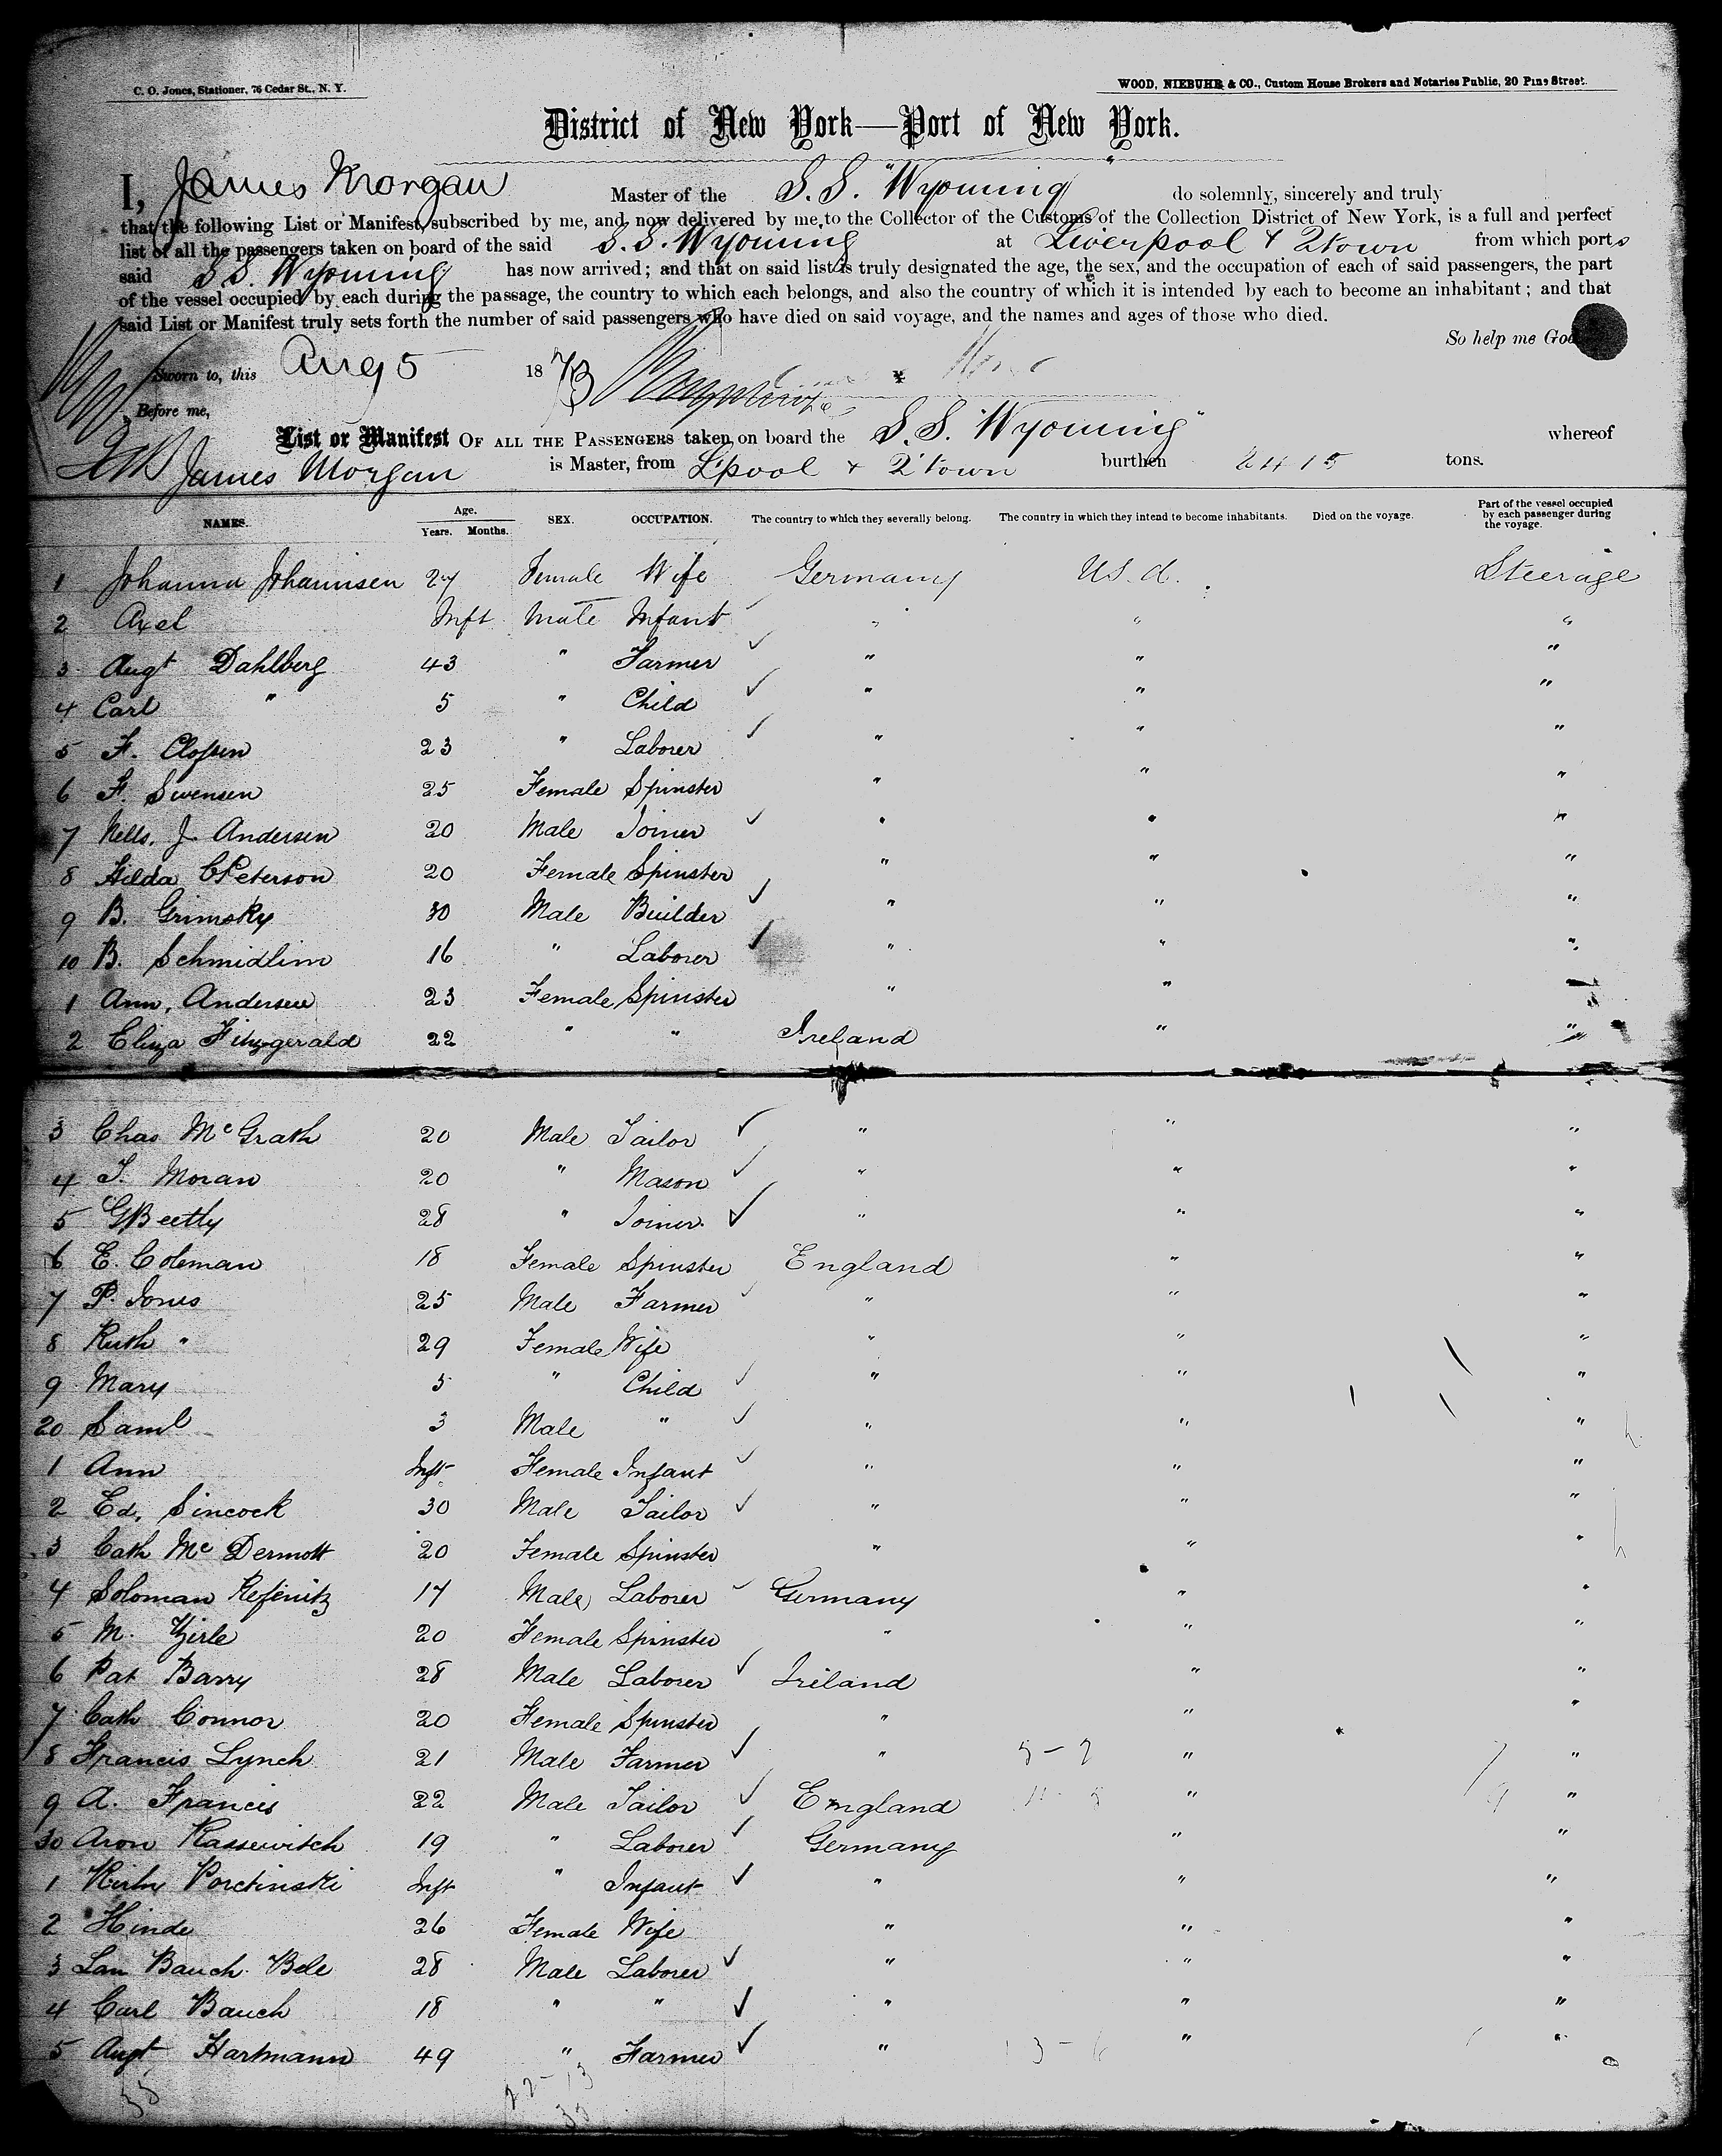 C. O. Jones, Stationer, 76 Cedar St., N. Y.
WOOD, NIEBUHR & CO., Custom House Brokers and Notaries Public, 20 Pine Street.
District of New York—Port of New York.
I, James Morgan Master of the S.S. "Wyoming" do solemnly, sincerely and truly
that the following List or Manifest, subscribed by me, and now delivered by me to the Collector of the Customs of the Collection District of New York, is a full and perfect
list of all the passengers taken on board of the said S.S. Wyoming at Liverpool & Qtown from which ports
said S.S. Wyoming has now arrived; and that on said list is truly designated the age, the sex, and the occupation of each of said passengers, the part
of the vessel occupied by each during the passage, the country to which each belongs, and also the country of which it is intended by each to become an inhabitant; and that
said List or Manifest truly sets forth the number of said passengers who have died on said voyage, and the names and ages of those who died.
So help me God
Sworn to, this Aug 5 1873
Before me,
List or Manifest OF ALL THE PASSENGERS taken on board the S.S. "Wyoming" whereof
James Morgan is Master, from L'pool & Q'town burthen 2415 tons.
NAMES. Age. Years. Months. SEX. OCCUPATION. The country to which they severally belong. The country in which they intend to become inhabitants. Died on the voyage. Part of the vessel occupied by each passenger during the voyage.
1 Johanna Johannsen 27 Female Wife Germany U.S.A. Steerage
2 Axel Inft Male Infant " " "
3 Augt Dahlberg 43 " Farmer " " "
4 Carl " 5 " Child " " "
5 F. Clossen 23 " Laborer " " "
6 F. Swensen 25 Female Spinster " " "
7 Nells. J. Andersen 20 Male Joiner " " "
8 Hilda C Peterson 20 Female Spinster " " "
9 B. Grimsky 30 Male Builder " " "
10 B. Schmidlin 16 " Laborer " " "
1 Ann. Andersen 23 Female Spinster " " "
2 Eliza Fitzgerald 22 " " Ireland " "
3 Chas McGrath 20 Male Tailor " " "
4 T. Moran 20 " Mason " " "
5 G Beetty 28 " Joiner " " "
6 E. Coleman 18 Female Spinster England " "
7 P. Jones 25 Male Farmer " " "
8 Ruth " 29 Female Wife " " "
9 Mary 5 " Child " " "
20 Saml 3 Male " " " "
1 Ann Inft Female Infant " " "
2 Ed. Sincock 30 Male Tailor " " "
3 Cath McDermott 20 Female Spinster " " "
4 Soloman 17 Male Laborer Germany " "
5 M. 20 Female Spinster " " "
6 Pat Barry 28 Male Laborer Ireland " "
7 Cath Connor 20 Female Spinster " " "
8 Francis Lynch 21 Male Farmer " " "
9 A. Francis 22 Male Tailor England " "
30 Aron Kassewitch 19 " Laborer Germany " "
1 Porchinski Inft " Infant " " "
2 Hinde 26 Female Wife " " "
3 Bauch Bele 28 Male Laborer " " "
4 Carl Bauch 18 " " " " "
5 Augt Hartmann 49 " Farmer " " "